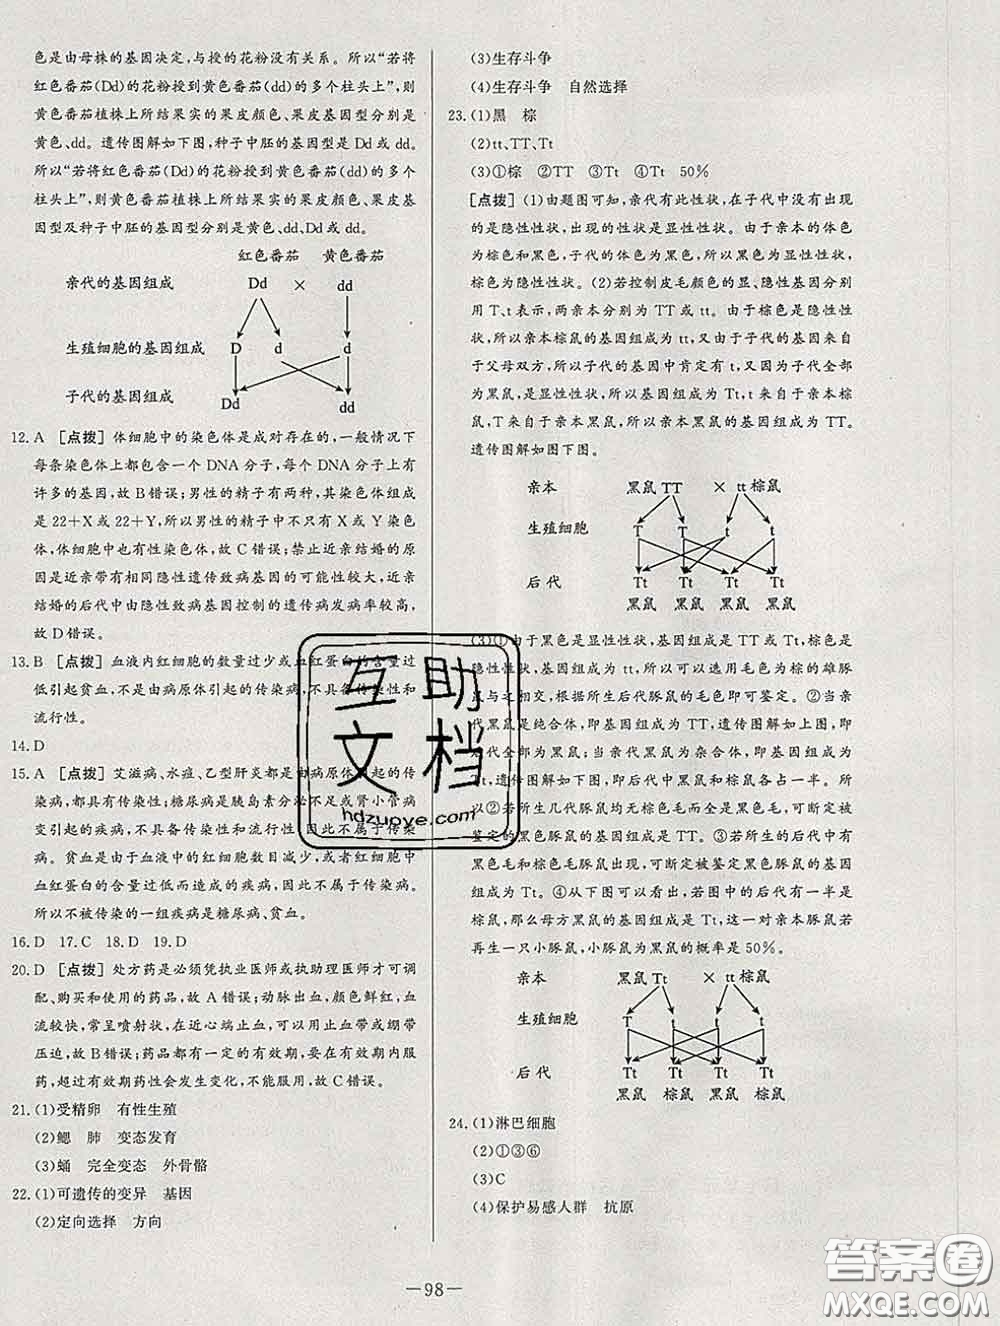 色是由母株的基因决定,与授的花粉没有关系。所以“若将
红色番茄(Dd)的花粉授到黄色番茄(dd)的多个柱头上”,则
黄色番茄植株上所结果实的果皮颜色、果皮基因型分别是
黄色、dd。遗传图解如下图,种子中胚的基因型是Dd或dd。
所以“若将红色番茄(Dd)的花粉授到黄色番茄(dd)的多个
柱头上”,则黄色番茄植株上所结果实的果皮颜色、果皮基
因型及种子中胚的基因型分别是黄色、dd、Dd或dd。
红色番茄 黄色番茄
亲代的基因组成 Dd × dd
生殖细胞的基因组成 D d d
子代的基因组成 Dd dd
12. A [点拨] 体细胞中的染色体是成对存在的,一般情况下
每条染色体上都包含一个DNA分子,每个DNA分子上有
许多的基因,故B错误;男性的精子有两种,其染色体组成
是22+X或22+Y,所以男性的精子中不只有X或Y染色
体,体细胞中也有性染色体,故C错误;禁止近亲结婚的原
因是近亲带有相同隐性遗传致病基因的可能性较大,近亲
结婚的后代中由隐性致病基因控制的遗传病发病率较高,
故D错误。
13. B [点拨] 血液内红细胞的数量过少或血红蛋白的含量过
低引起贫血,不是由病原体引起的传染病,不具备传染性和
流行性。
14. D
15. A [点拨] 艾滋病、水痘、乙型肝炎都是由病原体引起的传
染病,都具有传染性;糖尿病是胰岛素分泌不足或肾小管病
变引起的疾病,不具备传染性和流行性,因此不属于传染
病。贫血是由于血液中的红细胞数目减少,或者红细胞中
血红蛋白的含量过低而造成的疾病,因此不属于传染病。
所以不被传染的一组疾病是糖尿病、贫血。
16. D 17. C 18. D 19. D
20. D [点拨] 处方药是必须凭执业医师或执助理医师才可调
配、购买和使用的药品,故A错误;动脉出血,颜色鲜红,血
流较快,常呈喷射状,在近心端止血,可以用止血带或绷带
压迫,故B错误;药品都有一定的有效期,要在有效期内服
药,超过有效期药性会发生变化,不能服用,故C错误。
21. (1)受精卵 有性生殖
(2)鳃 肺 变态发育
(3)蛹 完全变态 外骨骼
22. (1)可遗传的变异 基因
(2)定向选择 方向
(3)生存斗争
(4)生存斗争 自然选择
23. (1)黑 棕
(2)tt、TT、Tt
(3)①棕 ②TT ③Tt ④Tt 50%
[点拨] (1)由题图可知,亲代有此性状,在子代中没有出现
的是隐性性状,出现的性状是显性性状。由于亲本的体色
为棕色和黑色,子代的体色为黑色,所以黑色为显性性状,
棕色为隐性性状。(2)若控制皮毛颜色的显、隐性基因分别
用T、t表示,两亲本分别为TT或tt。由于棕色是隐性性
状,所以亲本棕鼠的基因组成为tt,又由于子代的基因来自
于父母双方,所以子代的基因中肯定有t,又因为子代全部
为黑鼠,是显性性状,所以子代的基因组成为Tt,t来自亲本棕
鼠,T来自于亲本黑鼠,所以亲本黑鼠的基因组成为TT。
遗传图解如图下图。
亲本 黑鼠TT × tt棕鼠
生殖细胞 T T t t
后代 Tt Tt Tt Tt
黑鼠 黑鼠 黑鼠 黑鼠
(3)①由于黑色是显性性状,基因组成是TT或Tt,棕鼠是
隐性性状,基因组成为tt,所以可以选用毛色为棕的雄豚
鼠与之相交,根据所生后代豚鼠的毛色即可鉴定。②当亲
代黑鼠是纯合体,即基因组成为TT,遗传图解如上图,即
后代全部为黑鼠;当亲代黑鼠为杂合体,即基因组成为
Tt,遗传图解如下图,即后代中黑鼠和棕鼠各占一半。所
以②若所生几代豚鼠均无棕色毛而全是黑色毛,可断定被
鉴定的黑色豚鼠的基因组成是TT。③若所生的后代中,
黑色毛和棕色毛豚鼠出现,可断定被鉴定黑色豚鼠的基因
组成为Tt。④从下图可以看出,若图中的后代有一半是
棕鼠,那么母方黑鼠的基因组成是Tt,这一对亲本豚鼠若
再生一只小豚鼠,小豚鼠为黑鼠的概率是50%。
亲本 黑鼠Tt × tt棕鼠
生殖细胞 T t t t
后代 Tt tt Tt tt
黑鼠 棕鼠 黑鼠 棕鼠
24. (1)淋巴细胞
(2)①③⑥
(3)C
(4)保护易感人群 抗原
互助
文档
hdzuoye.com
—98—
答案圈
MXQE.COM